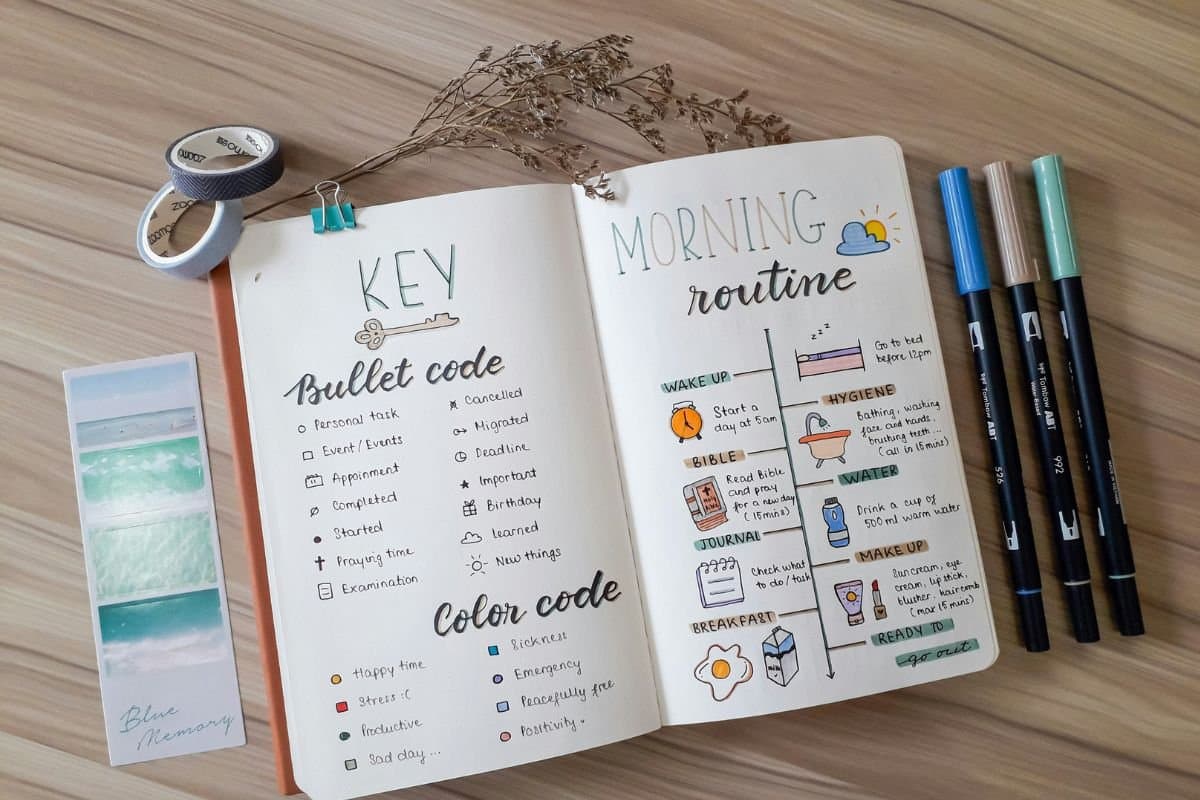 KEY
Bullet code
Personal task
Event/Events
Appoinment
Completed
Started
Praying time
Examination
Cancelled
Migrated
Deadline
Important
Birthday
learned
New things
Color code
Happy time
Stress :(
Productive
Sad day...
Sickness
Emergency
Peacefully free
Positivity.
MORNING
routine
zzz
Go to bed
before 12pm
WAKE UP
Start a
day at 5am
HYGIENE
Bathing, washing
face and hands,
brushing teeth...
(all in 15 mins)
BIBLE
Read Bible
and pray
for a new day
(15mins)
WATER
Drink a cup of
500 ml warm water
JOURNAL
Check what
to do / task
MAKE UP
Suncream, eye
cream, lip stick,
blusher, hair comb
(max 15 mins)
BREAKFAST
milk
READY TO
go out
Blue
Memory
Tombow ABT
526
Tombow ABT
992